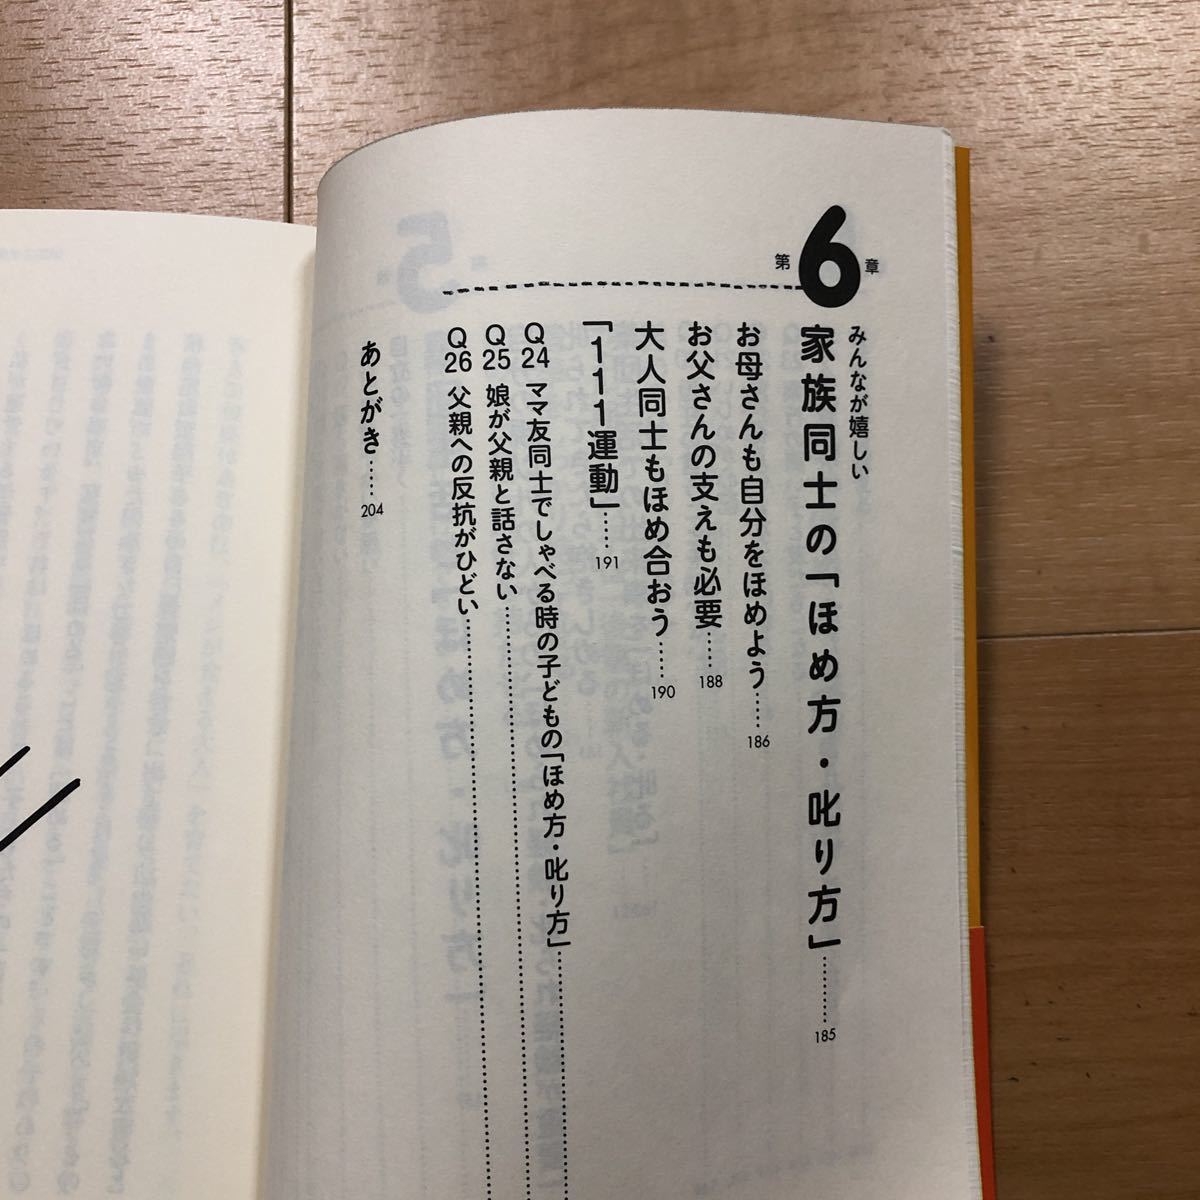 第6章
みんなが嬉しい
家族同士の「ほめ方・叱り方」………185
お母さんも自分をほめよう……186
お父さんの支えも必要……188
大人同士もほめ合おう……190
「111運動」……191
Q24 ママ友同士でしゃべる時の子どもの「ほめ方・叱り方」
Q25 娘が父親と話さない
Q26 父親への反抗がひどい
あとがき……204